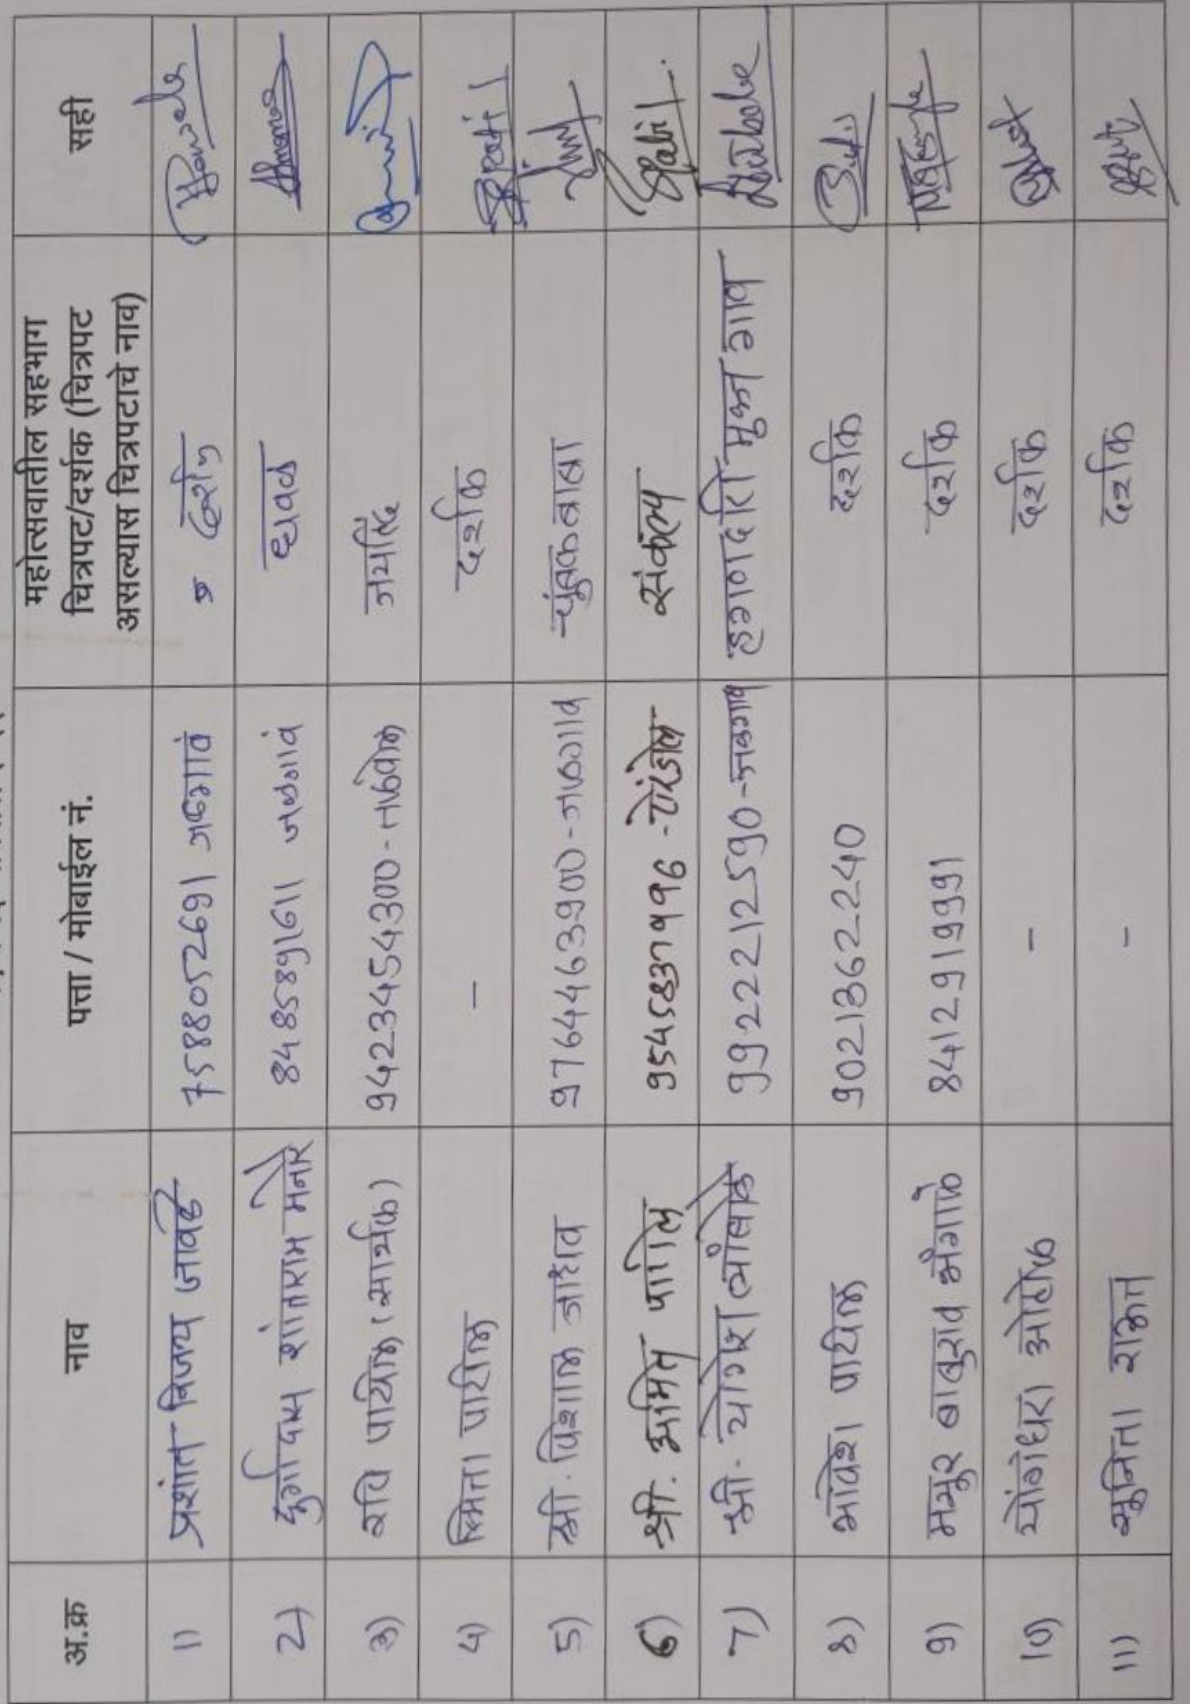 अ.क्र नाव पत्ता / मोबाईल नं. महोत्सवातील सहभाग चित्रपट/दर्शक (चित्रपट असल्यास चित्रपटाचे नाव) सही
1) प्रशांत विजय जावळे 7588052691 जळगावं
2) शांताराम मनोरे 8485891611 जळगावं
3) रवि पाटील (सार्थक) 9423454300 -
4) स्मिता पाटील - दर्शक
5) श्री. विशाल जाधव 9764463900 - जळगाव चुंबकबाबा
6) श्री. अमित पाटील 9545837996 - एरंडोल संकल्प
7) श्री. योगेश 9922212590 - जळगाव हागणदारी मुक्त गाव
8) भावेश पाटील 9021362240 दर्शक
9) मयुर बाबुराव भंगाळे 8412919991 दर्शक
10) - दर्शक
11) - दर्शक